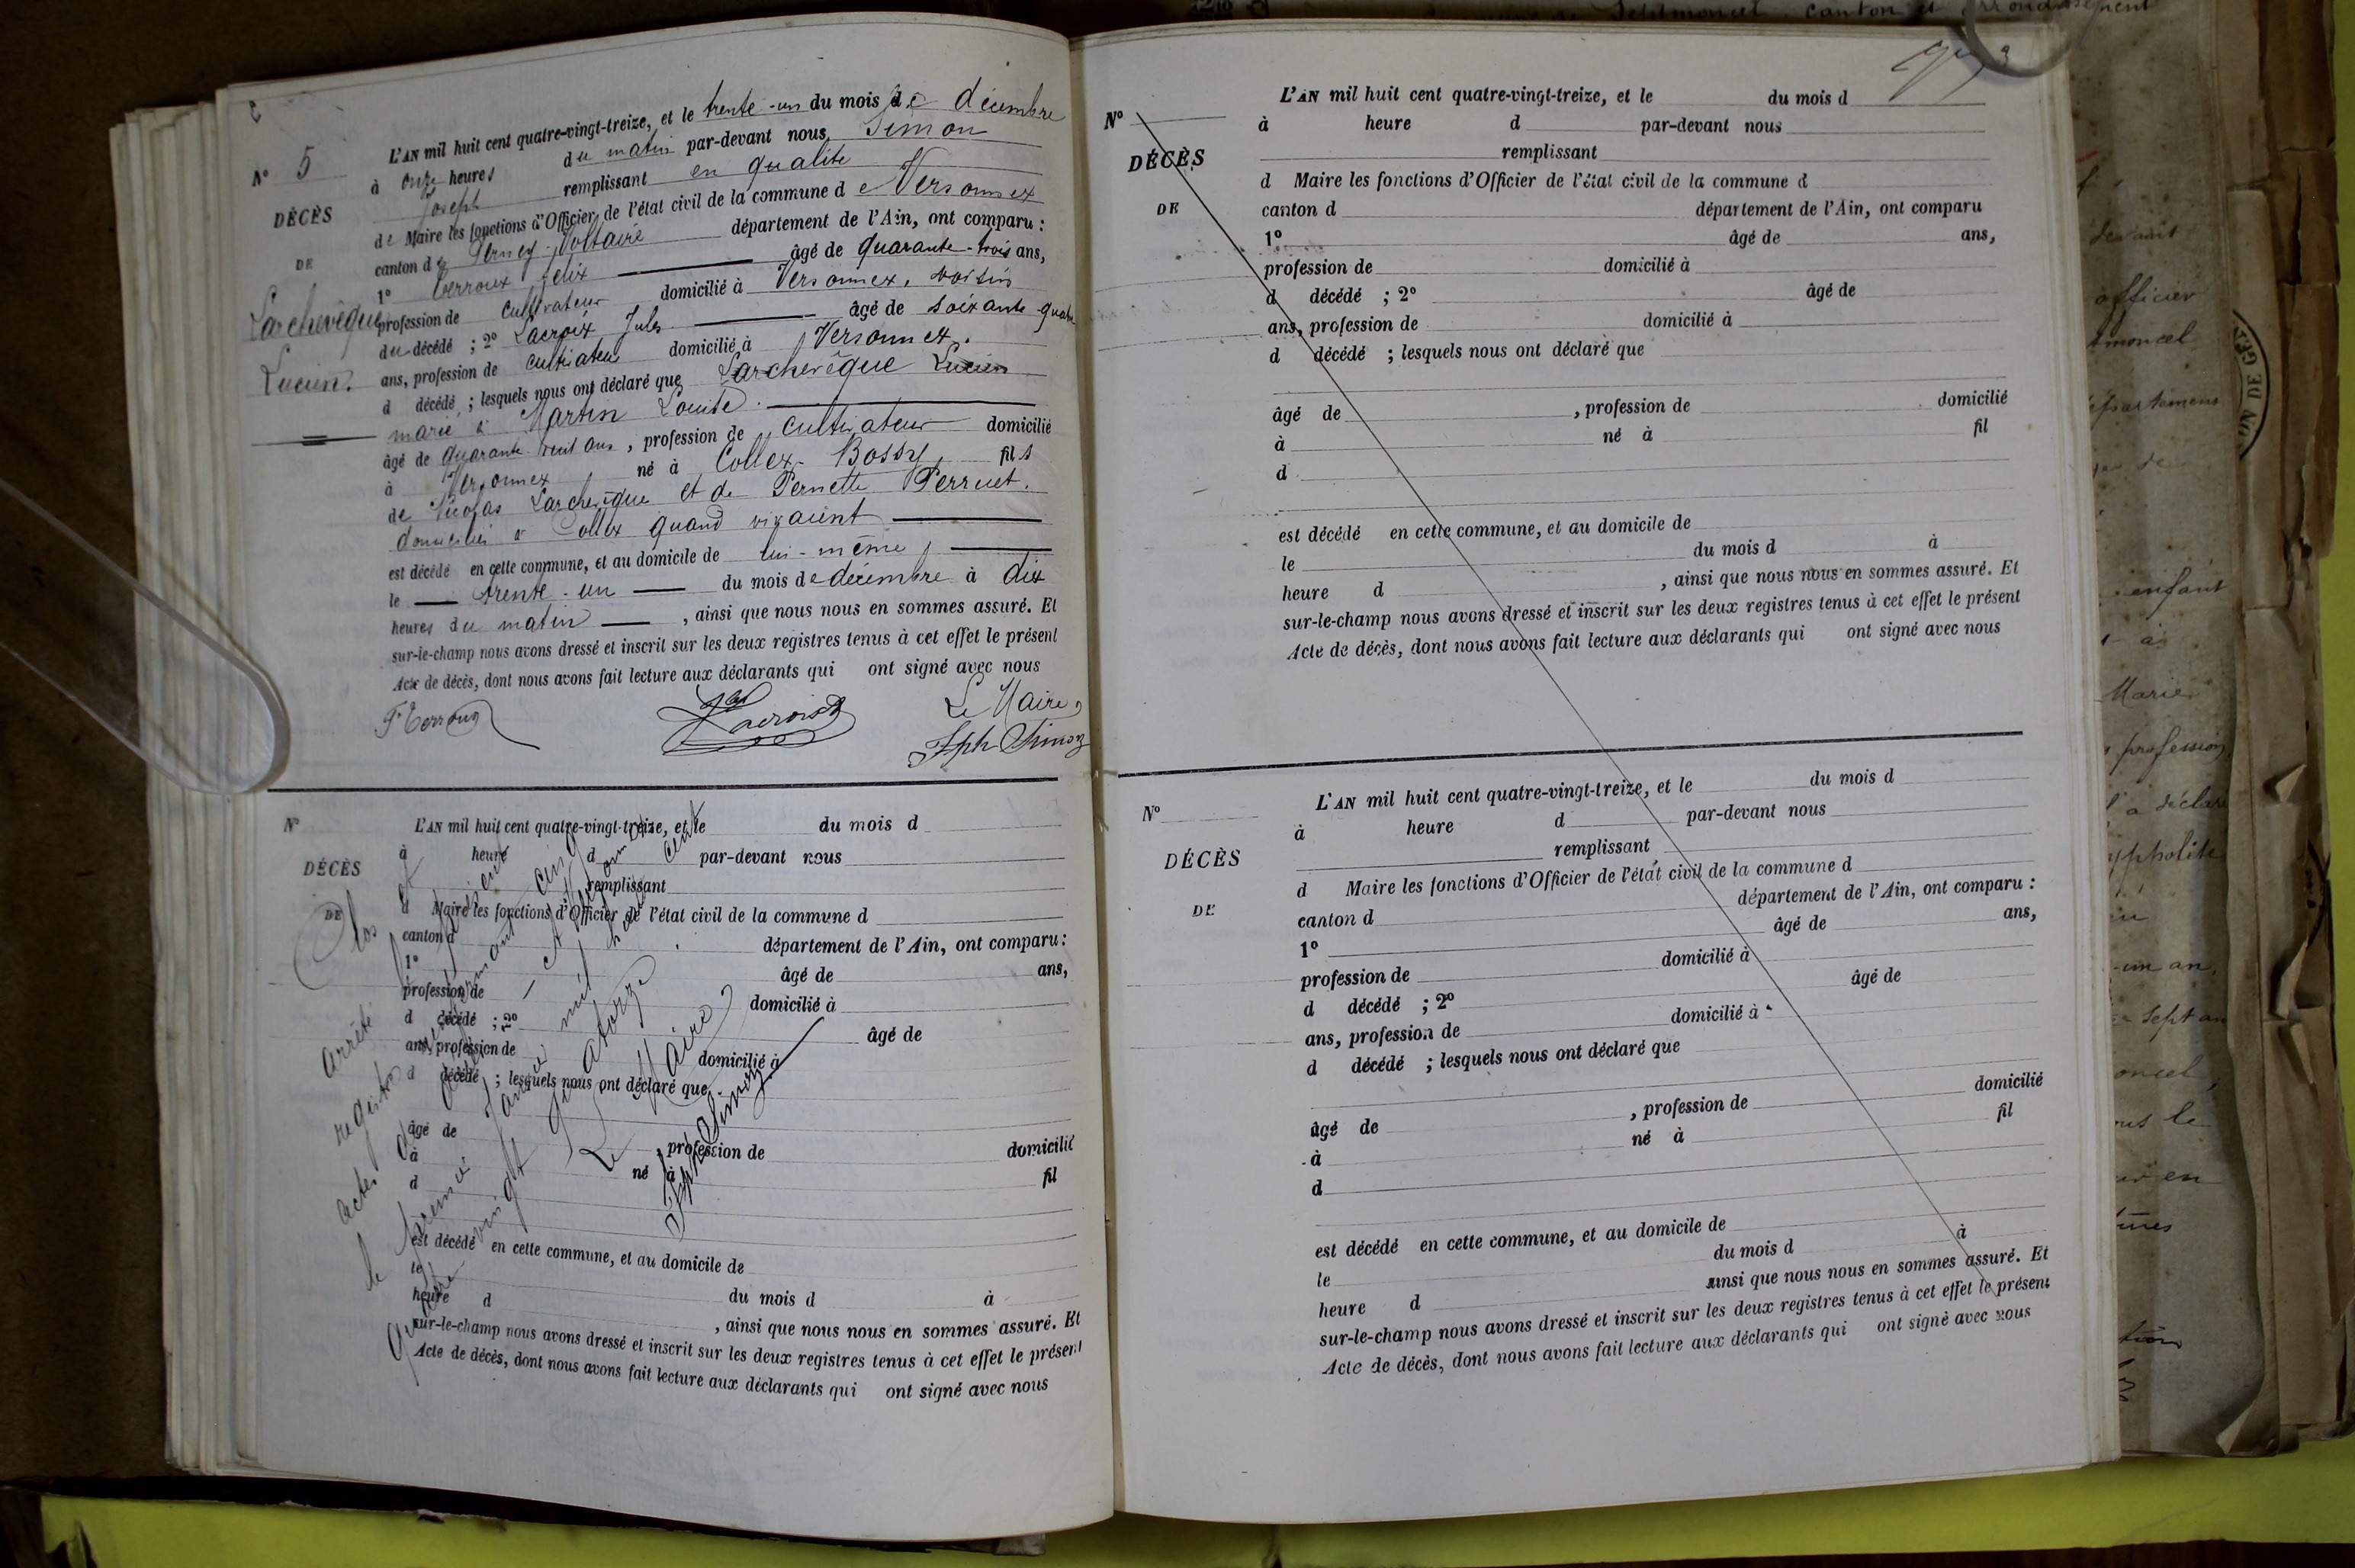 N° 5
DÉCÈS
DE
Larchevêque
Lucien.
L'AN mil huit cent quatre-vingt-treize, et le trente-un du mois de décembre
à onze heures du matin par-devant nous, Simon
Joseph remplissant en qualité
de Maire les fonctions d'Officier de l'état civil de la commune de Versonnex
canton de Ferney-Voltaire département de l'Ain, ont comparu :
1° Terroux félix âgé de quarante-trois ans,
profession de cultivateur domicilié à Versonnex, voisin
du décédé ; 2° Lacroix Jules âgé de soixante-quatre
ans, profession de cultivateur domicilié à Versonnex.
d décédé ; lesquels nous ont déclaré que Larchevêque Lucien
marié à Martin Louise.
âgé de quarante-huit ans, profession de cultivateur domicilié
à Versonnex né à Collex-Bossy, fils
de Nicolas Larchevêque et de Pernette Perruet.
domiciliés à Collex quand vivaient
est décédé en cette commune, et au domicile de lui-même,
le trente-un du mois de décembre à dix
heures du matin, ainsi que nous nous en sommes assuré. Et
sur-le-champ nous avons dressé et inscrit sur les deux registres tenus à cet effet le présent
Acte de décès, dont nous avons fait lecture aux déclarants qui ont signé avec nous
F Terroux Lacroix Le Maire,
Jph Simon
N°
DÉCÈS
DE
L'AN mil huit cent quatre-vingt-treize, et le du mois d
à heure d par-devant nous
remplissant
d Maire les fonctions d'Officier de l'état civil de la commune d
canton d département de l'Ain, ont comparu :
1° âgé de ans,
profession de domicilié à
d décédé ; 2° âgé de
ans, profession de domicilié à
d décédé ; lesquels nous ont déclaré que
âgé de , profession de domicilié
à né à fil
d
est décédé en cette commune, et au domicile de
le du mois d à
heure d , ainsi que nous nous en sommes assuré. Et
sur-le-champ nous avons dressé et inscrit sur les deux registres tenus à cet effet le présent
Acte de décès, dont nous avons fait lecture aux déclarants qui ont signé avec nous
Clos et
arrêté le présent
registre renfermant cinq
actes
le premier Janvier mil huit cent
quatre vingt quatorze
Le Maire,
Jph Simon
3
N°
DÉCÈS
DE
L'AN mil huit cent quatre-vingt-treize, et le du mois d
à heure d par-devant nous
remplissant
d Maire les fonctions d'Officier de l'état civil de la commune d
canton d département de l'Ain, ont comparu
1° âgé de ans,
profession de domicilié à
d décédé ; 2° âgé de
ans, profession de domicilié à
d décédé ; lesquels nous ont déclaré que
âgé de , profession de domicilié
à né à fil
d
est décédé en cette commune, et au domicile de
le du mois d à
heure d , ainsi que nous nous en sommes assuré. Et
sur-le-champ nous avons dressé et inscrit sur les deux registres tenus à cet effet le présent
Acte de décès, dont nous avons fait lecture aux déclarants qui ont signé avec nous
N°
DÉCÈS
DE
L'AN mil huit cent quatre-vingt-treize, et le du mois d
à heure d par-devant nous
remplissant
d Maire les fonctions d'Officier de l'état civil de la commune d
canton d département de l'Ain, ont comparu :
1° âgé de ans,
profession de domicilié à
d décédé ; 2° âgé de
ans, profession de domicilié à
d décédé ; lesquels nous ont déclaré que
âgé de , profession de domicilié
à né à fil
d
est décédé en cette commune, et au domicile de
le du mois d à
heure d ainsi que nous nous en sommes assuré. Et
sur-le-champ nous avons dressé et inscrit sur les deux registres tenus à cet effet le présent
Acte de décès, dont nous avons fait lecture aux déclarants qui ont signé avec nous
officier
enfant
Marie
profession
Sept an